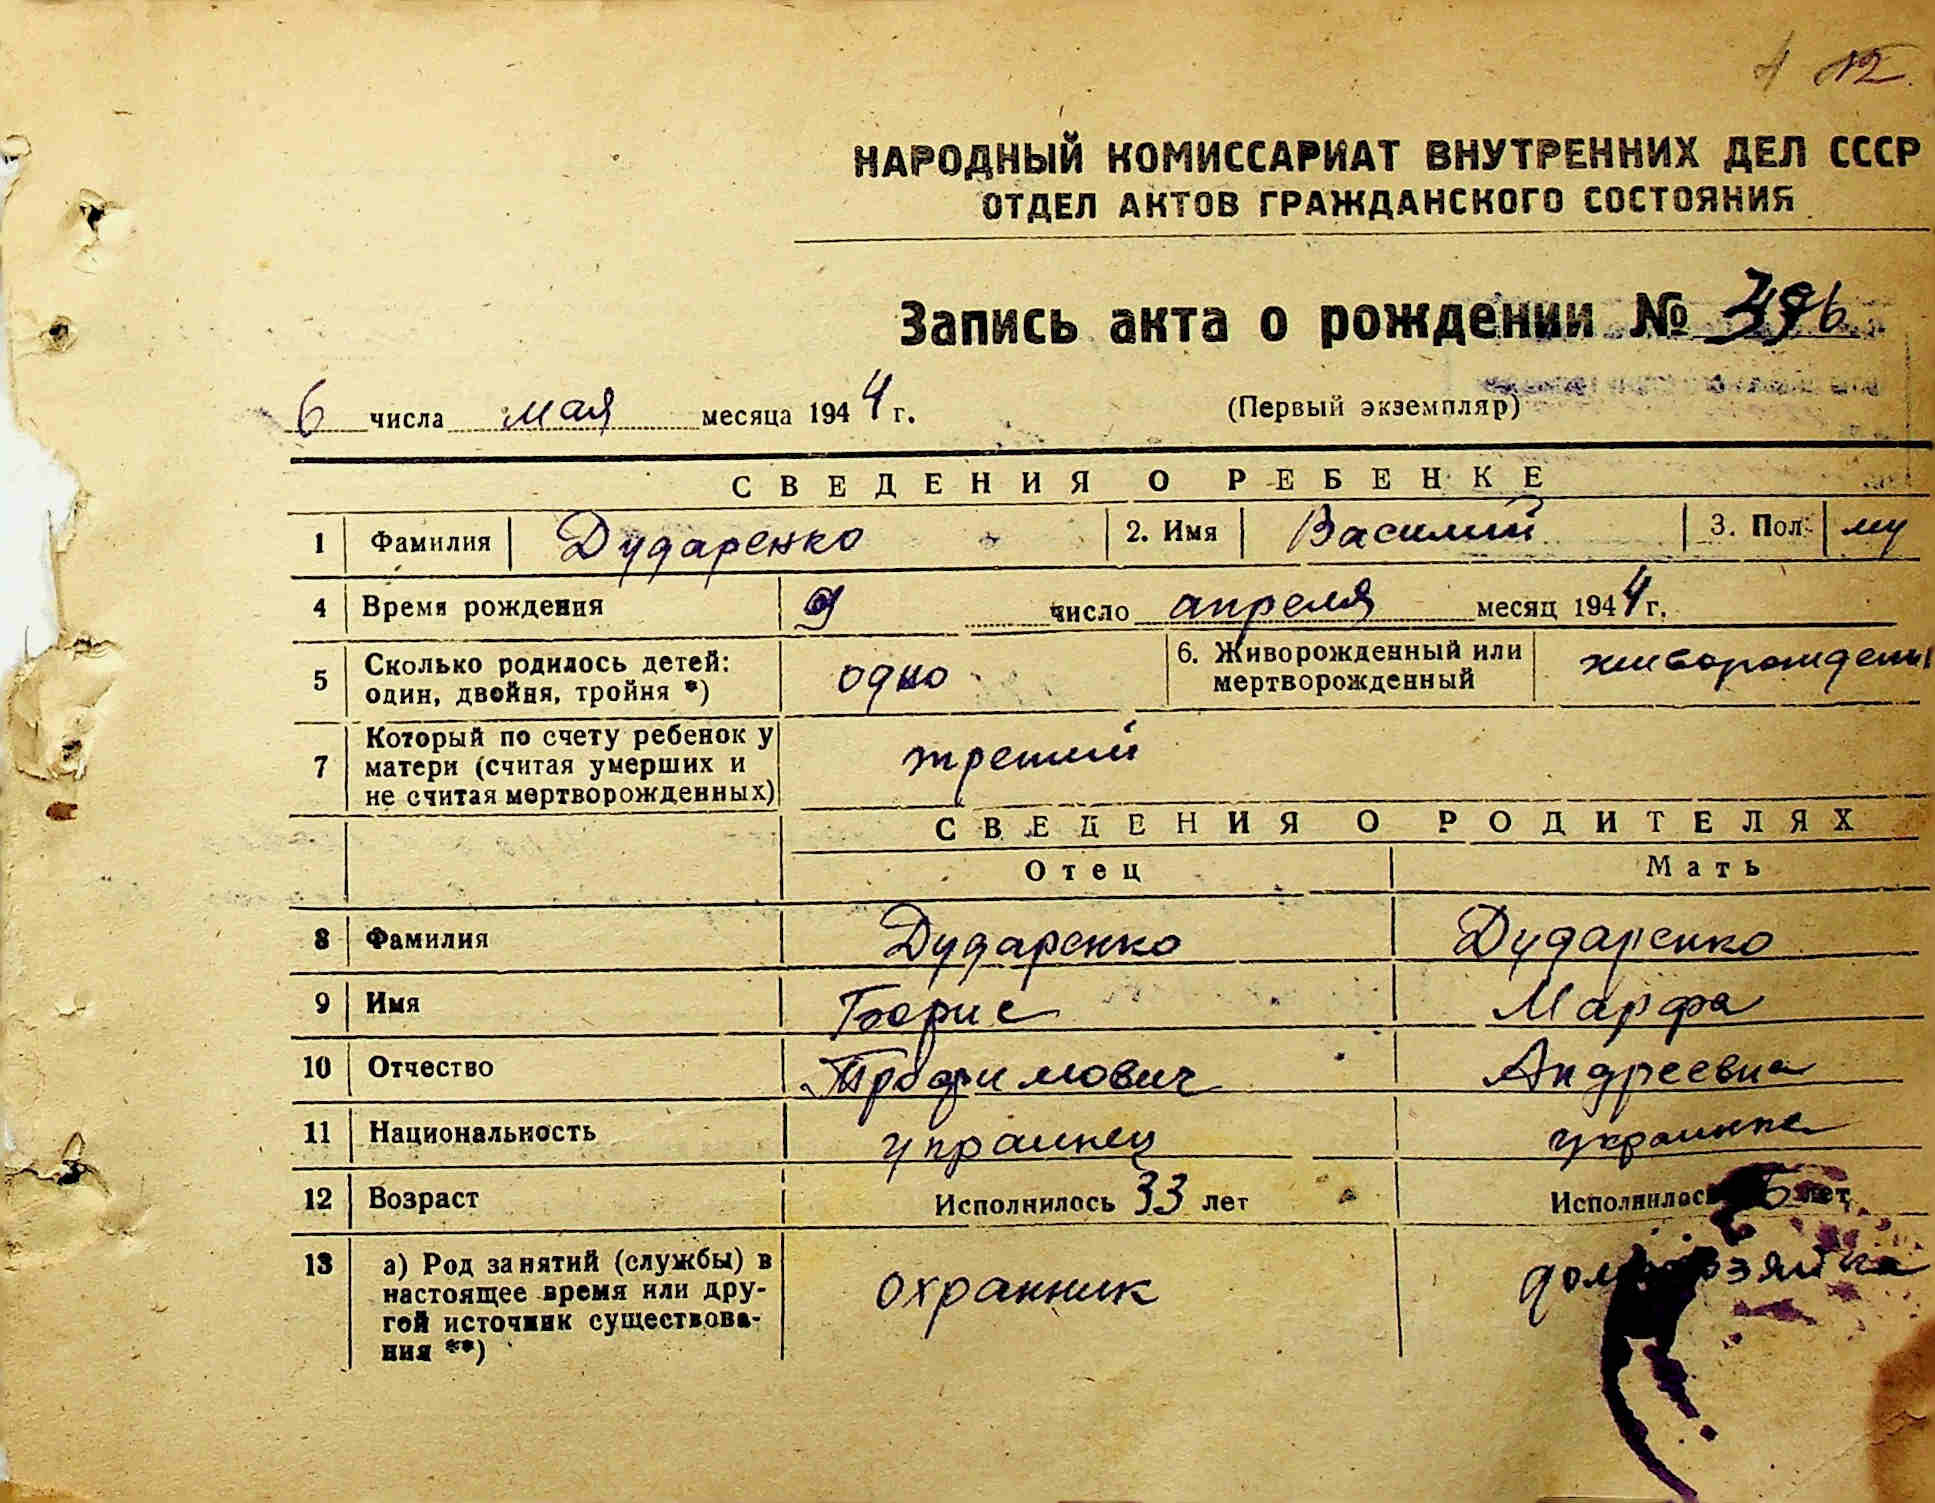 12
НАРОДНЫЙ КОМИССАРИАТ ВНУТРЕННИХ ДЕЛ СССР
ОТДЕЛ АКТОВ ГРАЖДАНСКОГО СОСТОЯНИЯ
Запись акта о рождении №
6 числа мая месяца 1944 г. (Первый экземпляр)
СВЕДЕНИЯ О РЕБЕНКЕ
1 Фамилия Дударенко 2. Имя Василий 3. Пол му
4 Время рождения 9 число апреля месяц 1944 г.
5 Сколько родилось детей: один, двойня, тройня *) одно 6. Живорожденный или мертворожденный живорожденный
7 Который по счету ребенок у матери (считая умерших и не считая мертворожденных) третий
СВЕДЕНИЯ О РОДИТЕЛЯХ
Отец Мать
8 Фамилия Дударенко Дударенко
9 Имя Борис Марфа
10 Отчество Трофимович Андреевна
11 Национальность украинец украинка
12 Возраст Исполнилось 33 лет Исполнилось лет
13 а) Род занятий (службы) в настоящее время или другой источник существования **) охранник домохозяйка